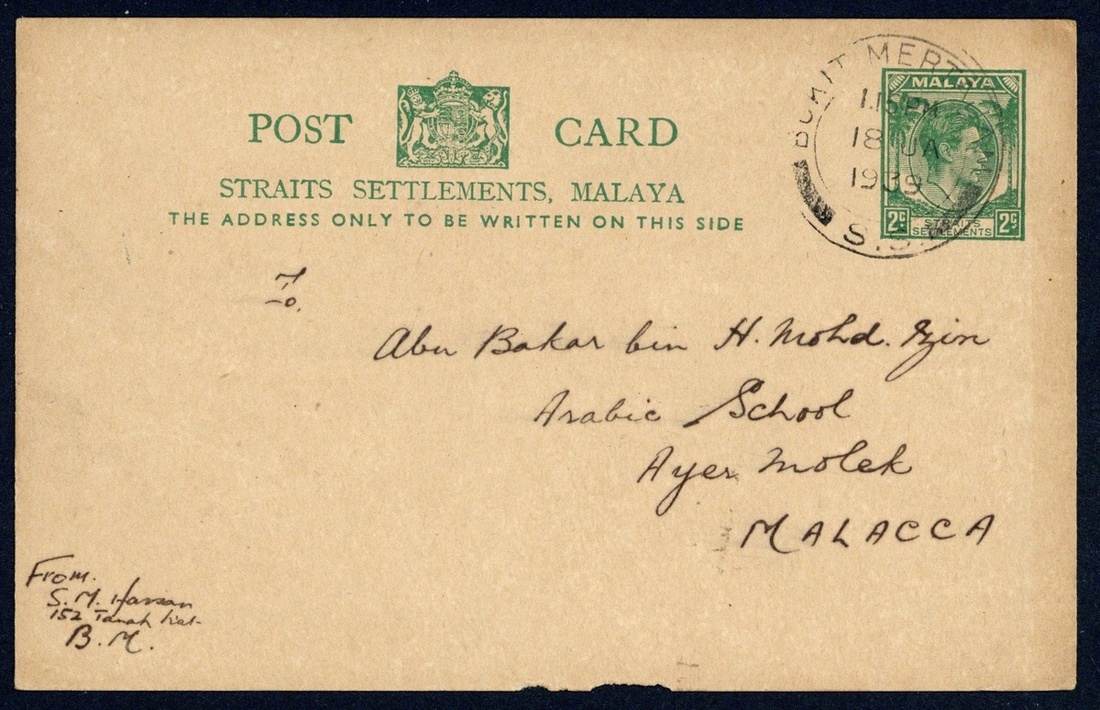 POST CARD
STRAITS SETTLEMENTS, MALAYA
THE ADDRESS ONLY TO BE WRITTEN ON THIS SIDE
BUKIT MERTAJAM
1.15PM
18 JA
1939
S.S.
MALAYA
2c STRAITS SETTLEMENTS 2c
To.
Abu Bakar bin H. Mohd.
Arabic School
Ayer Molek
MALACCA
From.
S. M. Hassan
152 Tanah Liat
B. M.